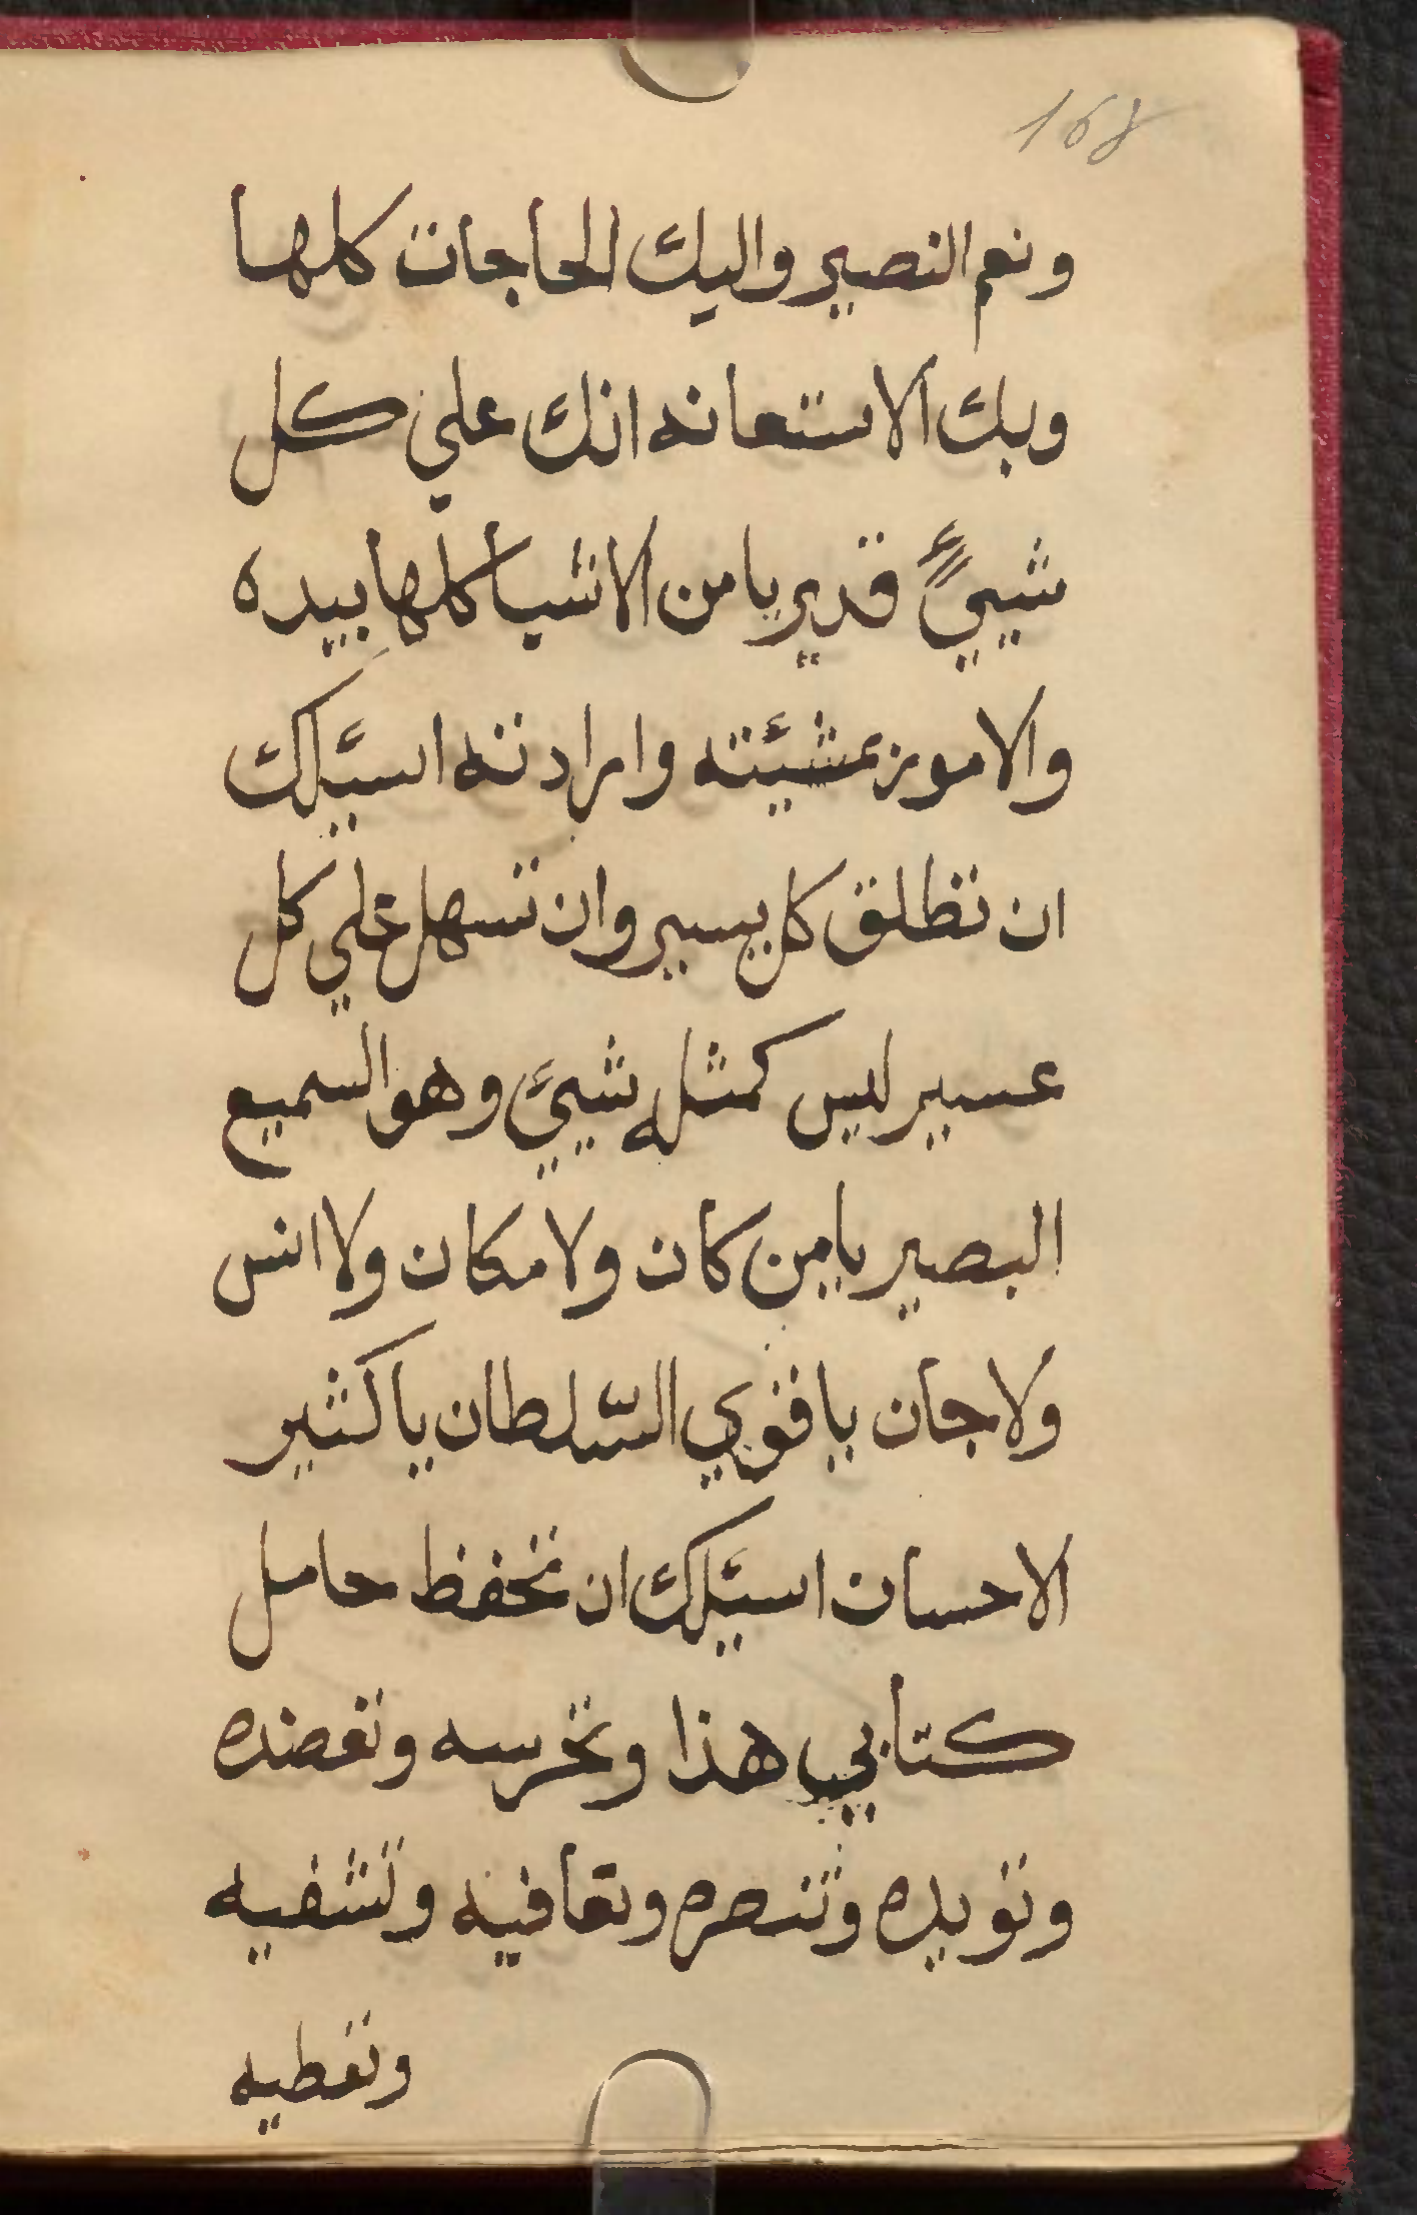 168
ونعم النصير واليك الحاجات كلها
وبك الاستعانه انك علي كل
شييءً قدير يا من الاشيا كلها بيده
والامور بمشيئته وارادته اسئلك
ان تطلق كل يسير وان تسهل علي كل
عسير ليس كمثله شييء وهو السميع
البصير يا من كان ولا مكان ولا انس
ولا جان يا قوي السّلطان يا كثير
الاحسان اسئلك ان تحفظ حامل
كتابي هذا وتحرسه وتعضده
وتويده وتنصره وتعافيه وتشفيه
وتعطيه